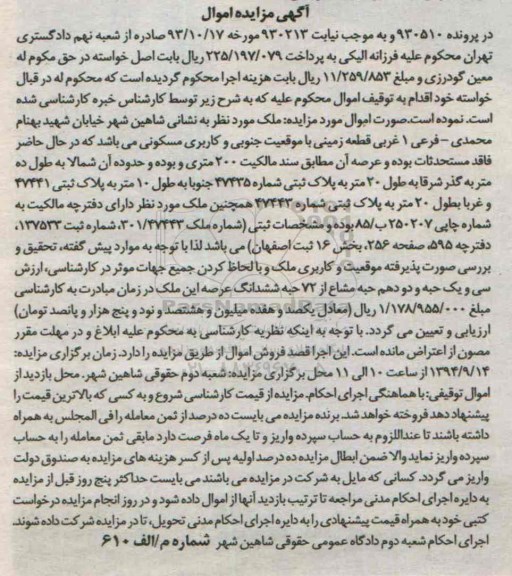 آگهی مزایده اموال
در پرونده ۹۳۰۵۱۰ و به موجب نیابت ۹۳۰۲۱۳ مورخه ۹۳/۱۰/۱۷ صادره از شعبه نهم دادگستری
تهران محکوم علیه فرزانه الیکی به پرداخت ۲۲۵/۱۹۷/۰۷۹ ریال بابت اصل خواسته در حق مکوم له
معین گودرزی و مبلغ ۱۱/۲۵۹/۸۵۳ ریال بابت هزینه اجرا محکوم گردیده است که محکوم له در قبال
خواسته خود اقدام به توقیف اموال محکوم علیه که به شرح زیر توسط کارشناس خبره کارشناسی شده
است. نموده است.صورت اموال مورد مزایده: ملک مورد نظر به نشانی شاهین شهر خیابان شهید بهنام
محمدی – فرعی ۱ غربی قطعه زمینی با موقعیت جنوبی و کاربری مسکونی می باشد که در حال حاضر
فاقد مستحدثات بوده و عرصه آن مطابق سند مالکیت ۲۰۰ متری و بوده و حدوده آن شمالا به طول ده
متر به گذر شرقا به طول ۲۰ متر به پلاک ثبتی شماره ۴۷۴۳۵ جنوبا به طول ۱۰ متر به پلاک ثبتی ۴۷۴۴۱
و غربا بطول ۲۰ متر به پلاک ثبتی شماره ۴۷۴۴۳ همچنین ملک مورد نظر دارای دفترچه مالکیت به
شماره چاپی ۲۵۰۲۰۷ ب/۸۵ بوده و مشخصات ثبتی (شماره ملک ۳۰۱/۴۷۴۴۳، شماره ثبت ۱۳۷۵۳۳،
دفترچه ۵۹۵، صفحه ۲۵۶، بخش ۱۶ ثبت اصفهان) می باشد لذا با توجه به موارد پیش گفته، تحقیق و
بررسی صورت پذیرفته موقعیت و کاربری ملک و با لحاظ کردن جمیع جهات موثر در کارشناسی، ارزش
سی و یک حبه و دو دهم حبه مشاع از ۷۲ حبه ششدانگ عرصه این ملک در زمان مبادرت به کارشناسی
مبلغ ۱/۱۷۸/۹۵۵/۰۰۰ ریال (معادل یکصد و هفده میلیون و هشتصد و نود و پنج هزار و پانصد تومان)
ارزیابی و تعیین می گردد. با توجه به اینکه نظریه کارشناسی به محکوم علیه ابلاغ و در مهلت مقرر
مصون از اعتراض مانده است. این اجرا قصد فروش اموال از طریق مزایده را دارد. زمان برگزاری مزایده:
۱۳۹۴/۹/۱۴ از ساعت ۱۰ الی ۱۱ محل برگزاری مزایده: شعبه دوم حقوقی شاهین شهر. محل بازدید از
اموال توقیفی: با هماهنگی اجرای احکام. مزایده از قیمت کارشناسی شروع و به کسی که بالاترین قیمت را
پیشنهاد دهد فروخته خواهد شد. برنده مزایده می بایست ده درصد از ثمن معامله را فی المجلس به همراه
داشته باشند تا عنداللزوم به حساب سپرده واریز و تا یک ماه فرصت دارد مابقی ثمن معامله را به حساب
سپرده واریز نماید والا ضمن ابطال مزایده ده درصد اولیه پس از کسر هزینه های مزایده به صندوق دولت
واریز می گردد. کسانی که مایل به شرکت در مزایده می باشند می بایست حداکثر پنج روز قبل از مزایده
به دایره اجرای احکام مدنی مراجعه تا ترتیب بازدید آنها از اموال داده شود و در روز انجام مزایده درخواست
کتبی خود به همراه قیمت پیشنهادی را به دایره اجرای احکام مدنی تحویل، تا در مزایده شرکت داده شوند.
اجرای احکام شعبه دوم دادگاه عمومی حقوقی شاهین شهر شماره م/الف ۶۱۰